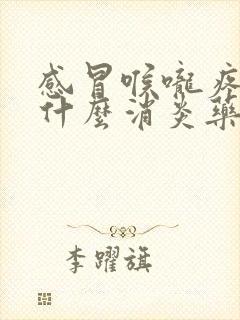 感冒喉嚨疼
什麼消炎藥
李躍旗